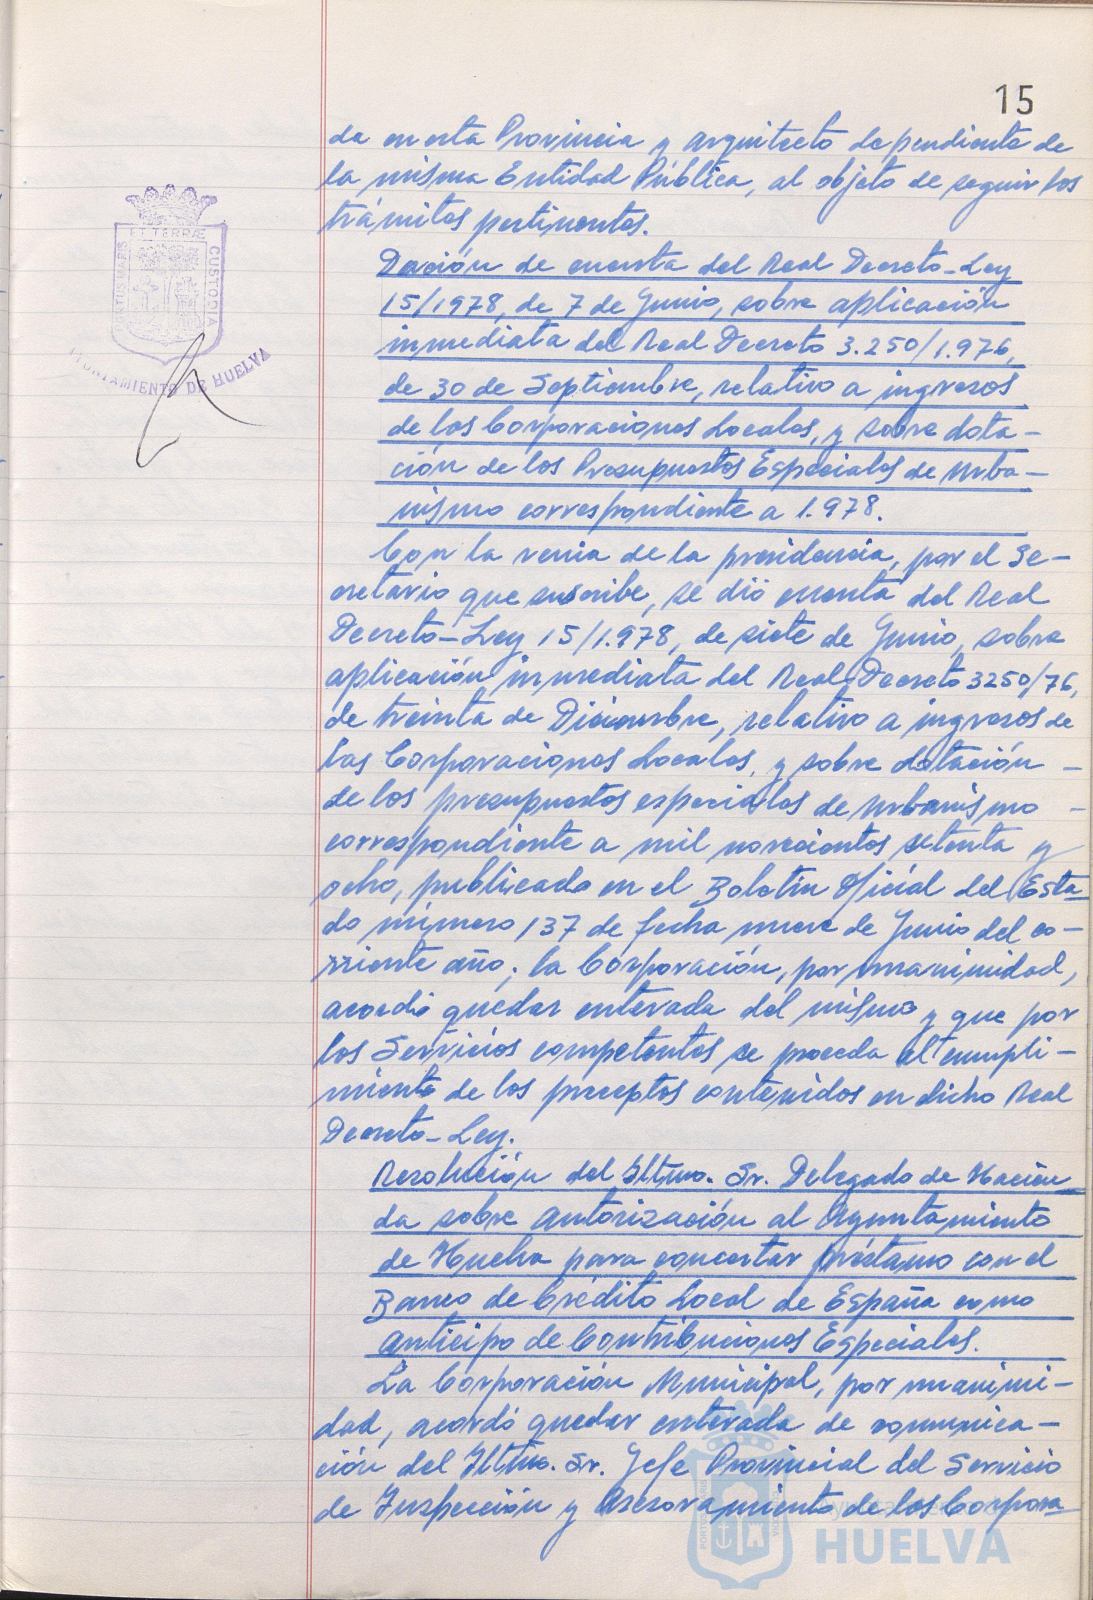 15
da en esta Provincia y Arquitecto dependiente de
la misma Entidad Pública, al objeto de seguir los
trámites pertinentes.
ET TERRAE
PORTUS MARIS
CUSTODIA
AYUNTAMIENTO DE HUELVA
Dación de cuenta del Real Decreto-Ley
15/1978, de 7 de Junio, sobre aplicación
inmediata del Real Decreto 3.250/1.976,
de 30 de Septiembre, relativo a ingresos
de las Corporaciones Locales, y sobre dota-
ción de los Presupuestos Especiales de Urba-
nismo correspondiente a 1.978.
Con la venia de la presidencia, por el Se-
cretario que suscribe, se dió cuenta del Real
Decreto-Ley 15/1.978, de siete de Junio, sobre
aplicación inmediata del Real Decreto 3250/76,
de treinta de Diciembre, relativo a ingresos de
las Corporaciones Locales, y sobre dotación -
de los presupuestos especiales de Urbanismo -
correspondiente a mil novecientos setenta y
ocho, publicado en el Boletín Oficial del Esta-
do número 137 de fecha nueve de Junio del co-
rriente año; la Corporación, por unanimidad,
acordó quedar enterada del mismo y que por
los Servicios competentes se proceda al cumpli-
miento de los preceptos contenidos en dicho Real
Decreto-Ley.
Resolución del Iltmo. Sr. Delegado de Hacien-
da sobre autorización al Ayuntamiento
de Huelva para concertar préstamo con el
Banco de Crédito Local de España como
anticipo de Contribuciones Especiales.
La Corporación Municipal, por unanimi-
dad, acordó quedar enterada de comunica-
ción del Iltmo. Sr. Jefe Provincial del Servicio
de Inspección y Asesoramiento de las Corpora-
HUELVA